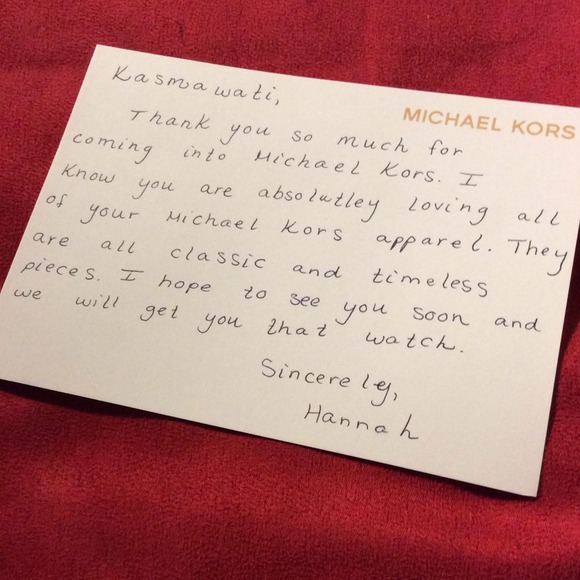 MICHAEL KORS
Kasmawati,
Thank you so much for
coming into Michael Kors. I
know you are absolutley loving all
of your Michael Kors apparel. They
are all classic and timeless
pieces. I hope to see you soon and
we will get you that watch.
Sincerely,
Hannah